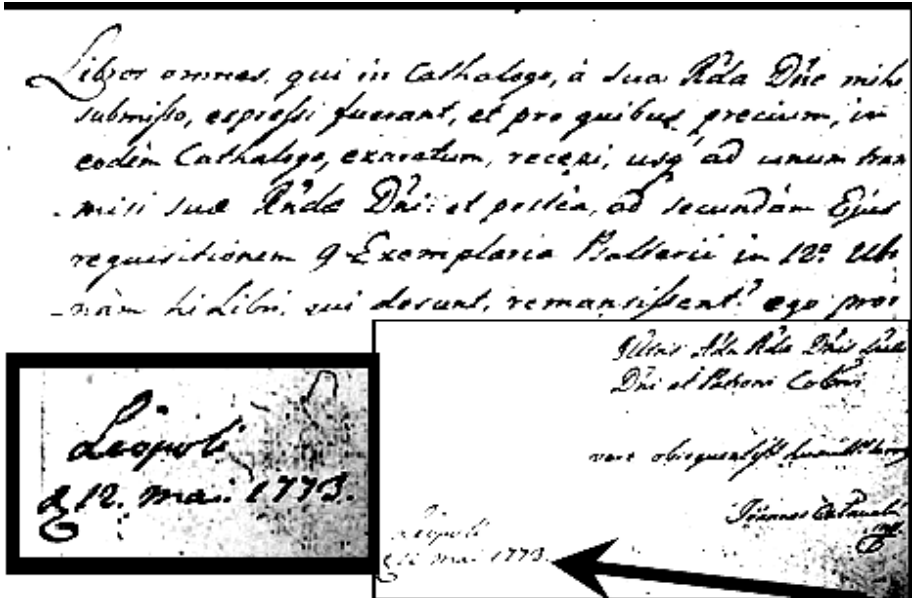 Libros omnes, qui in Cathalogo, à sua Rda Dne mihi
submisso, expressi fuerant, et pro quibus precium, in
eodem Cathalogo, exaratum, recepi, usq ad unum tran
-misi suæ Rndæ Dni: et postea, ad secundam Ejus
requisitionem 9 Exemplaria Psalterii in 12º Uti
-nam hi Libri, qui desunt, remansissent! ego
Leopoli
d 12. mai. 1773.
Dni et Patroni Colmi
Joannes
Leopoli
d 12 mai 1773.